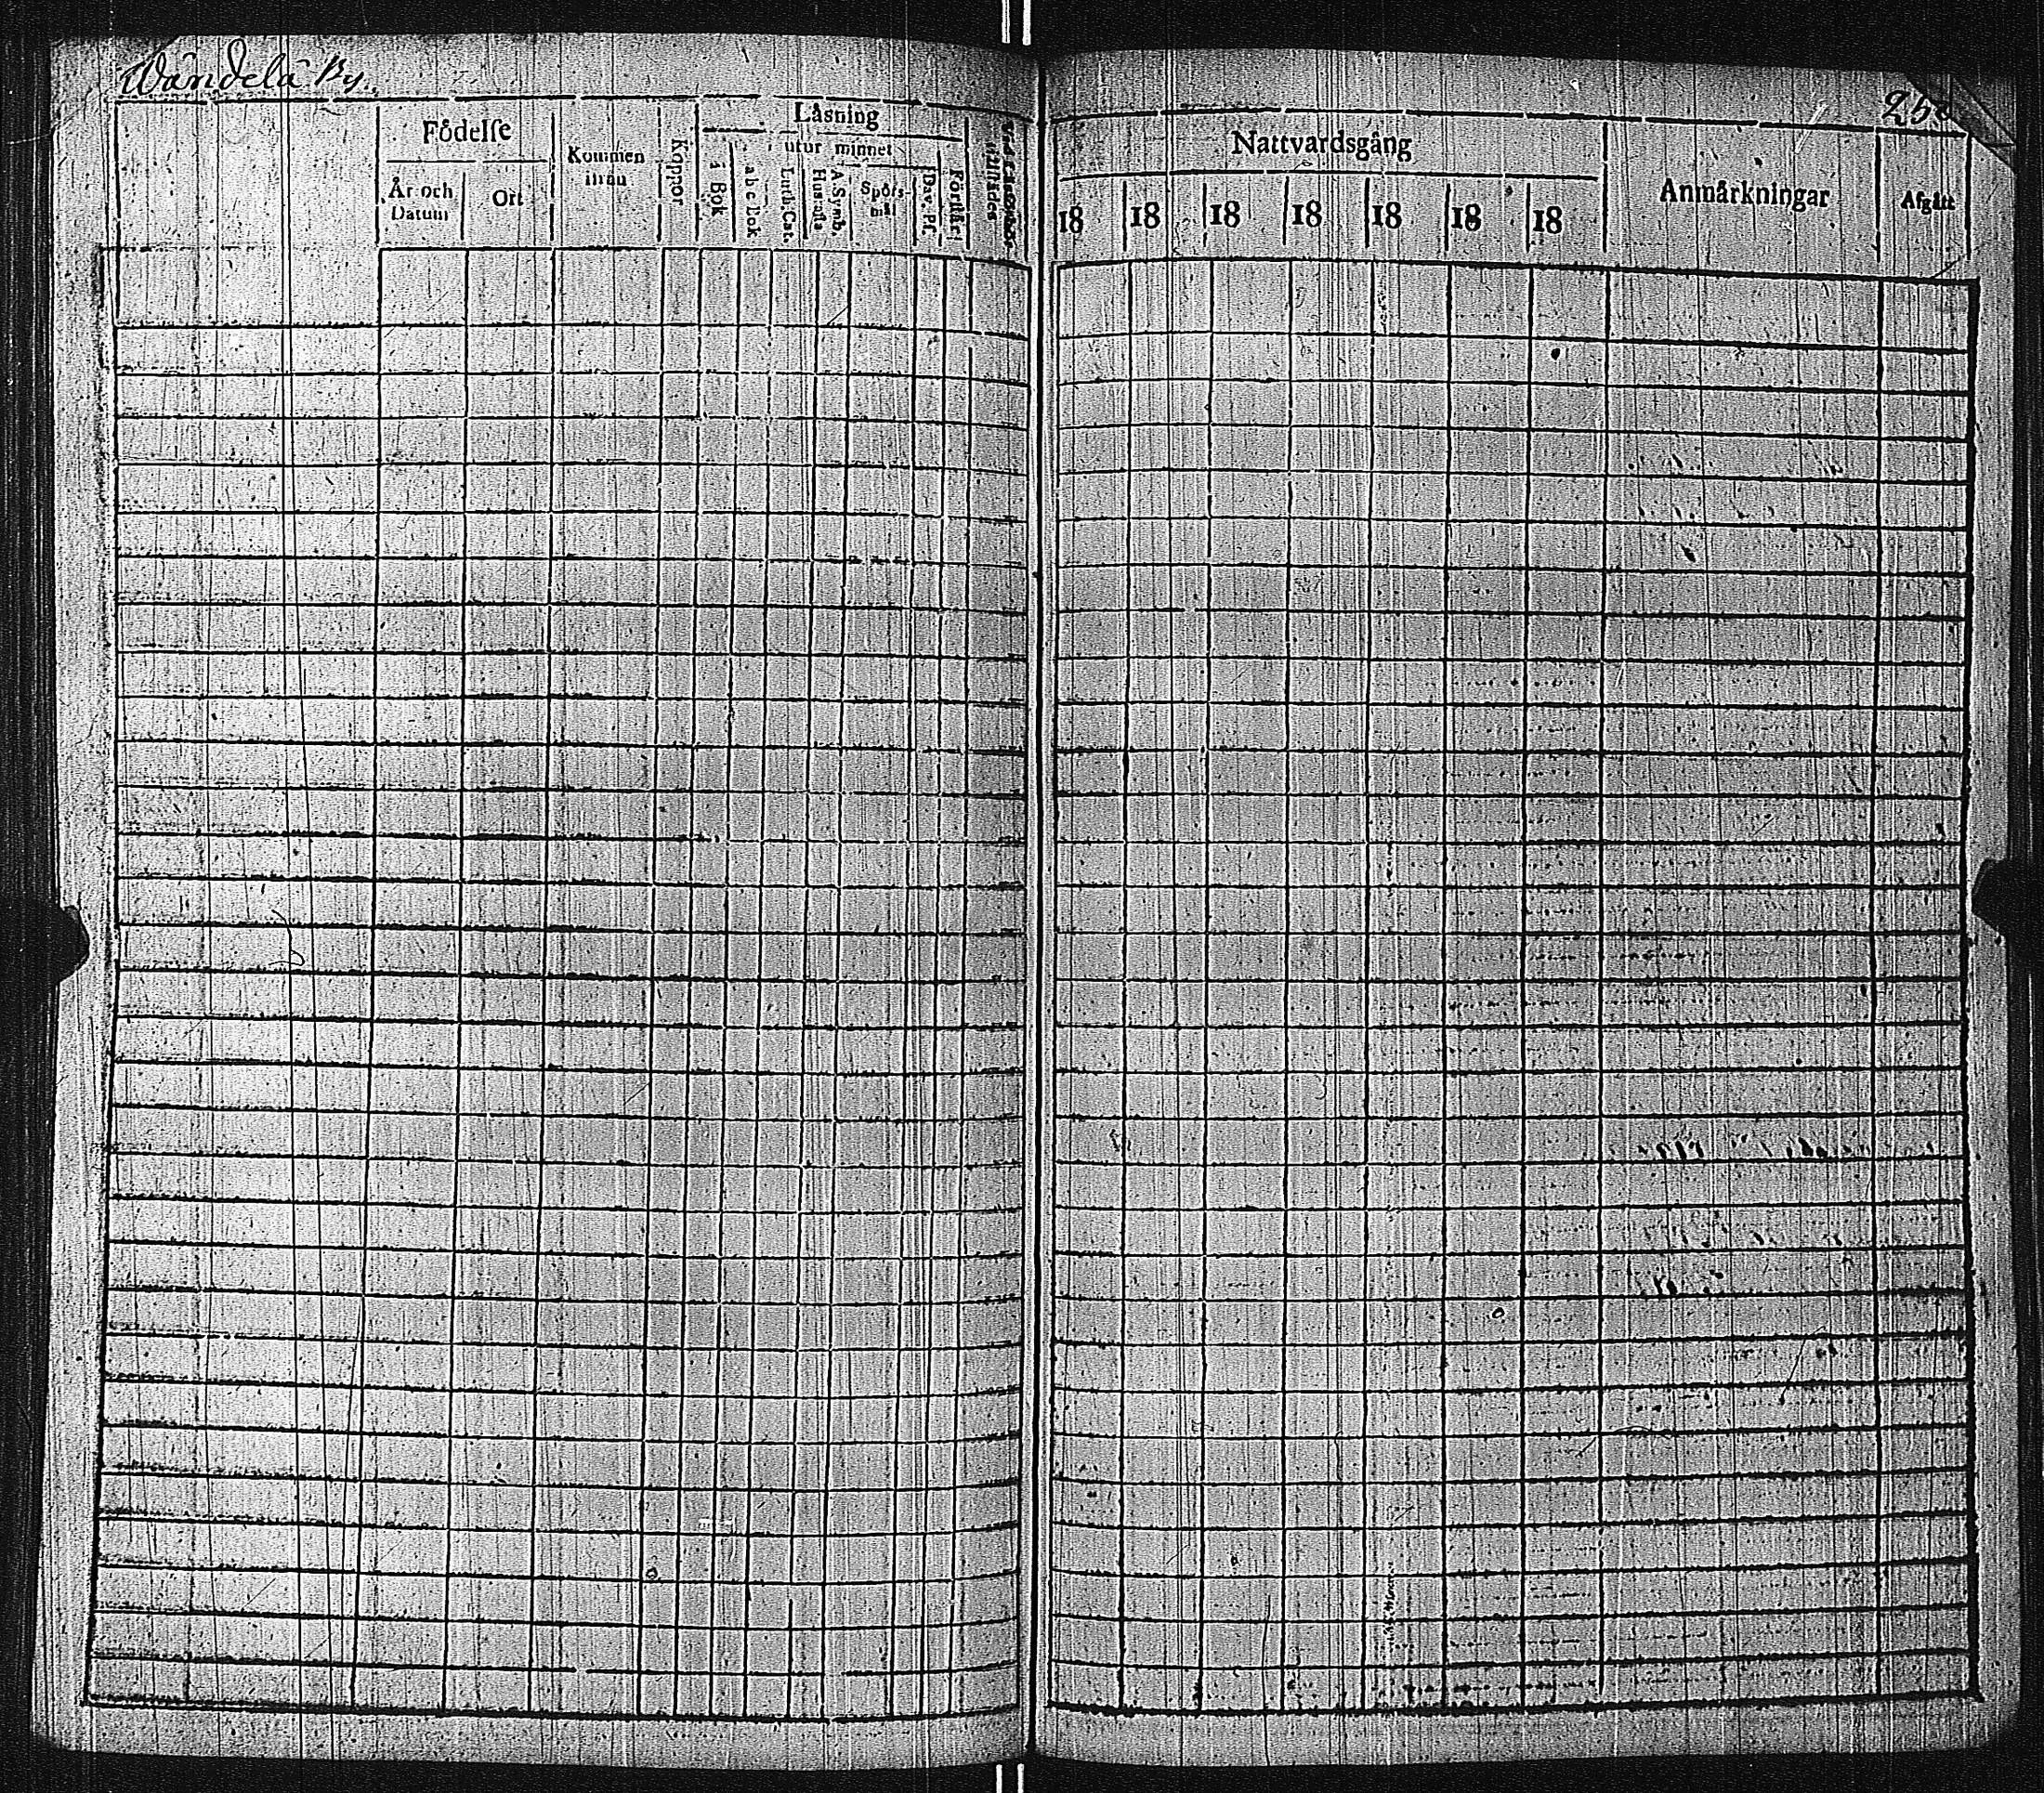 Wändelä By.
Födelse
År och Datum
Ort
Kommen ifrån
Koppor
Läsning
i Bok
utur minnet
a b c Bok
Luth. Cat.
Hustafla
A. Symb.
Spörsmål
Dav. Ps.
Förstår
Nattvardsgång
18 18 18 18 18 18 18
Anmärkningar
Afgått